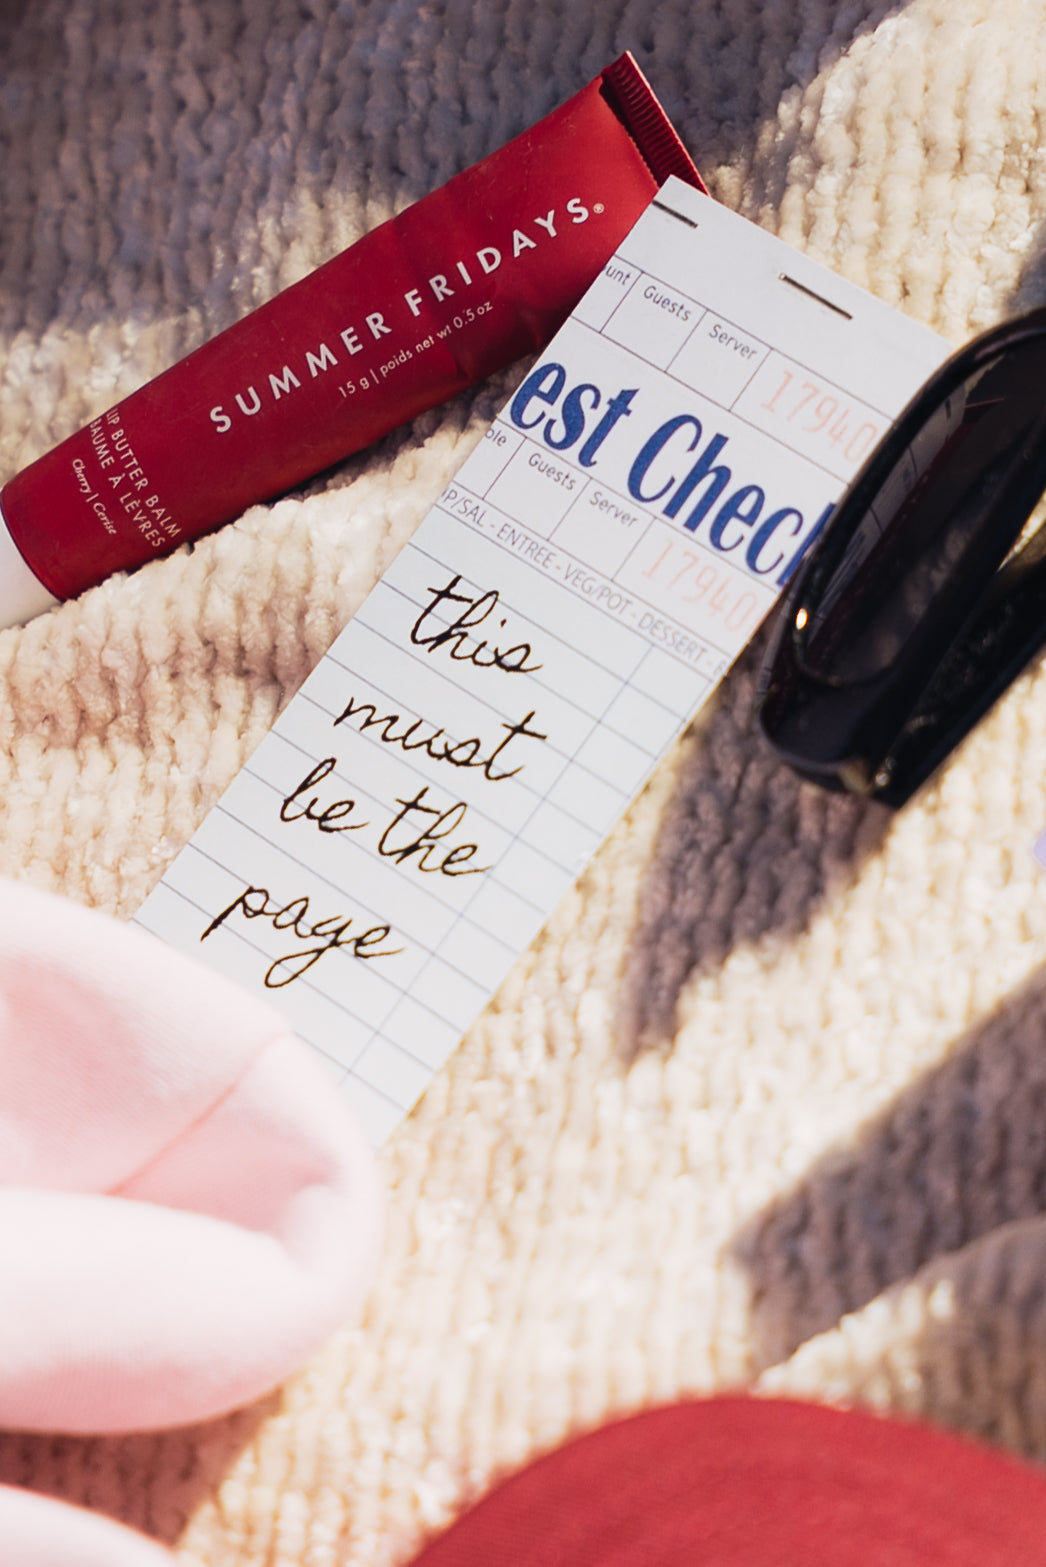 SUMMER FRIDAYS®
15 g | poids net wt 0.5 oz
LIP BUTTER BALM
BAUME À LÈVRES
Cherry | Cerise
Guests Server
17940
est Check
Guests Server
17940
P/SAL - ENTREE - VEG/POT - DESSERT -
this
must
be the
page